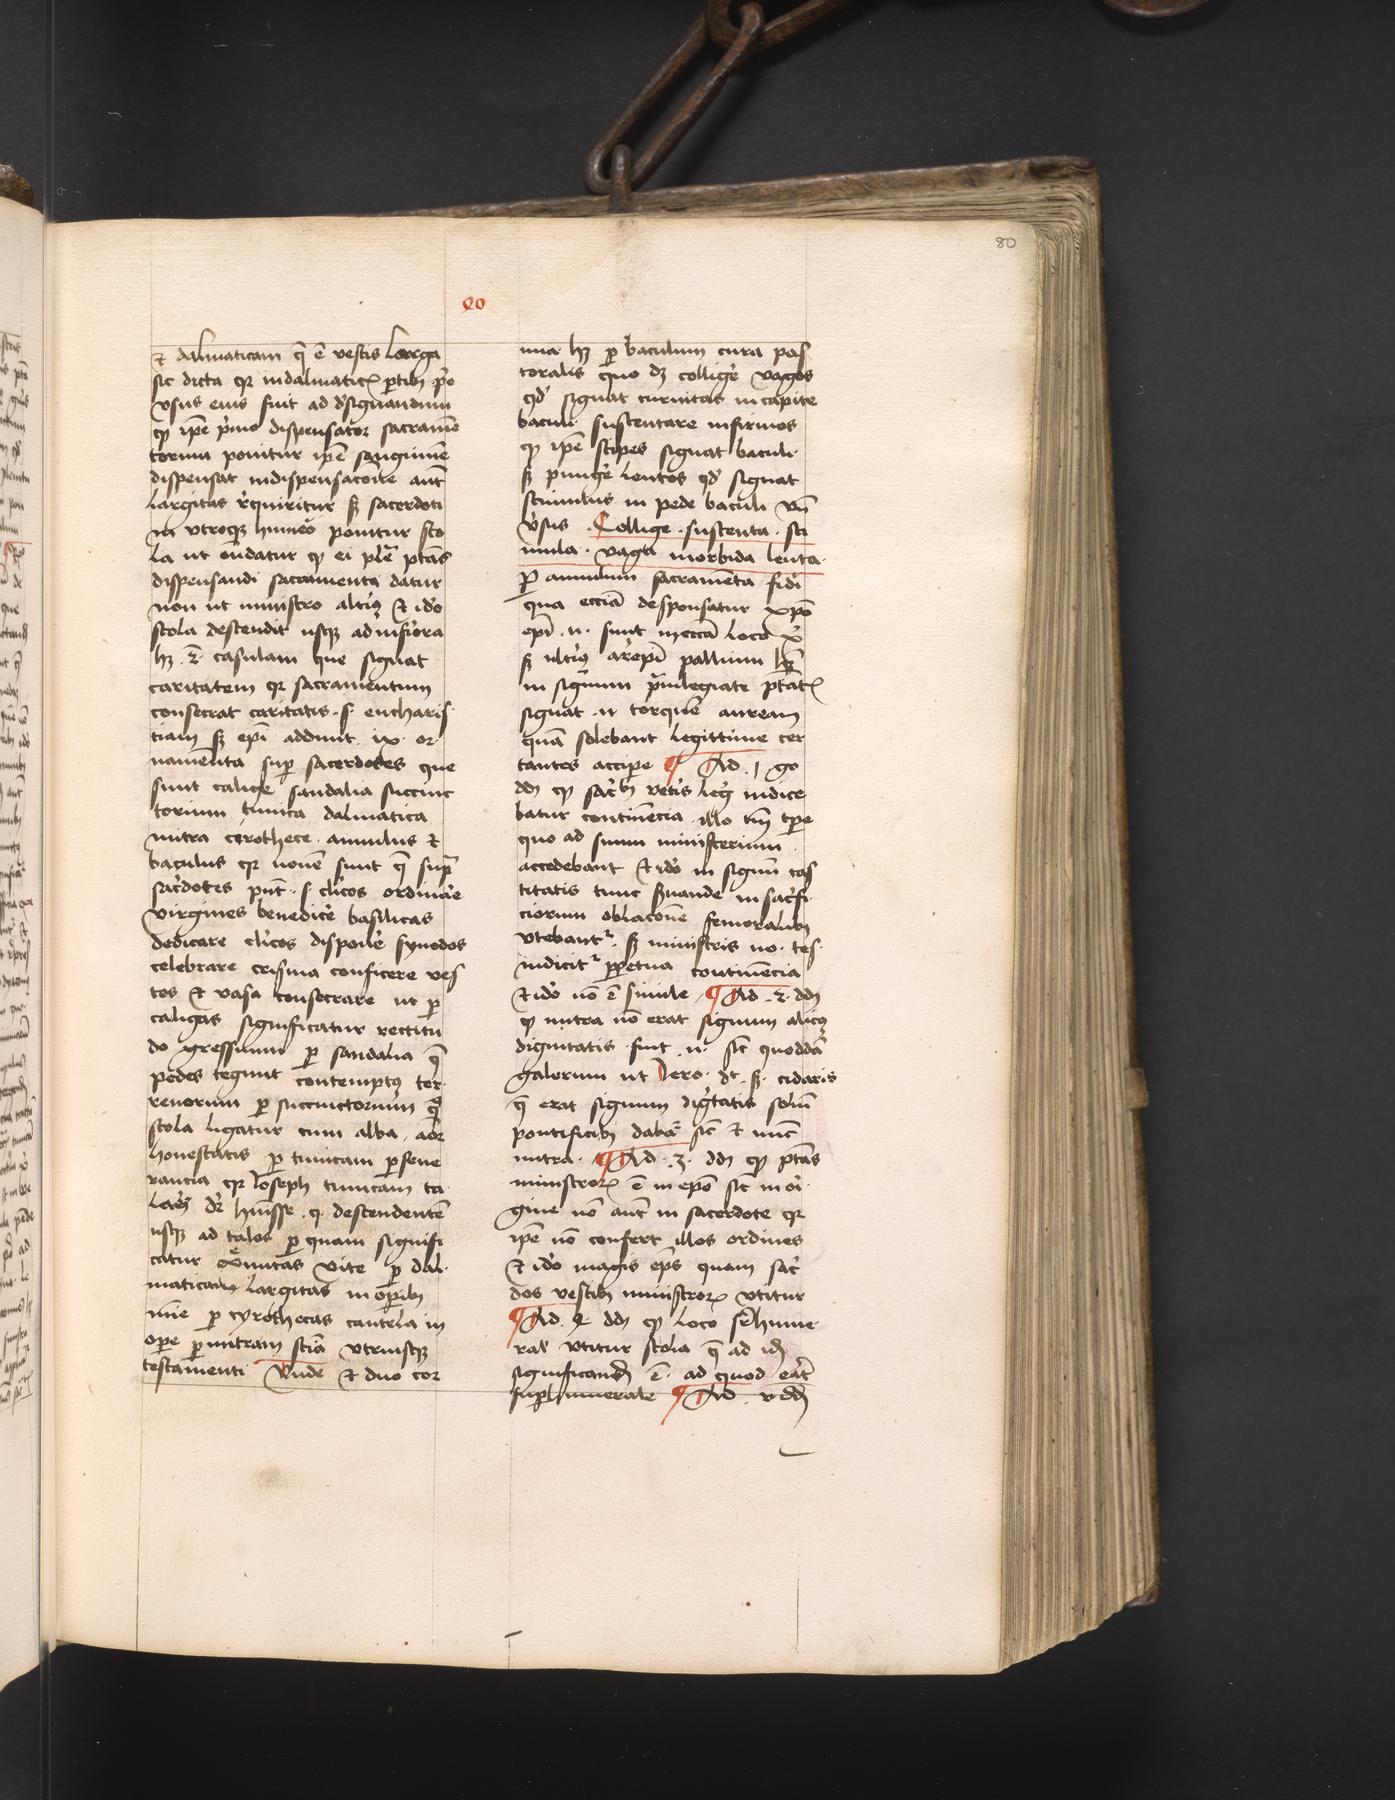 80
20
et dalmaticam q̄ ē vestis larga
sic dicta qr in dalmatie ꝑtibꝫ p̓o
vsus eius fuit ad d̓signandum
ꝙ ipē p̓mo dispensator sacramē
torum ponitur ipē sanguinē
dispensat in dispensacōne aut̄
largitas r̓quiritur sꝫ sacerdoti
in vtroqꝫ humeo ponitur sto
la ut on̄datur ꝙ ei plēa ptās
dispensandi sacramenta datur
non ut ministro altiꝰ et ido
stola descendit usqꝫ ad inferiora
hꝫ .2. casulam que signat
caritatem qr sacramentum
consecrat caritatis .s. eucharis
tiam sꝫ epī addunt ix or
namenta suꝑ sacerdotes que
sunt calige sandalia succinc
torium tunica dalmatica
mitra cerothece annulus et
baculus qr nouē sunt q̄ supͣ
sac̓dotes pn̄t .s. cl̓icos ordināe
virgines benedic̓e basilicas
dedicare cl̓icos disponē synodos
celebrare crisma conficere ves
tes et vasa consecrare ut ꝑ
caligas significatur rectitu
do gressuum ꝑ sandalia q̄
pedes tegunt contemptꝰ ter
renorum ꝑ succinctorium q̊
stola ligatur cum alba amor
honestatis ꝑ tunicam ꝑseue
rancia qr Ioseph tunicam ta
larē dr̄ habuisse .q. descendentē
usqꝫ ad talos ꝑ quam signifi
catur ext̓mitas vite ꝑ dal
maticam largitas in oꝑibꝫ
mīe ꝑ cyrothecas cautela in
oꝑe ꝑ mitram scīa vtriusqꝫ
testamenti Vnde et duo cor
nua hꝫ ꝑ baculum cura pas
toralis quo dꝫ collig̓e vagos
qd̓ signat curuitas in capite
baculi sustentare infirmos
ꝙ ipē stipes signat baculi
sꝫ pung̓e lentos qd̓ signat
stimulus in pede baculi vn̄
v̓sus Collige sustenta sti
mula vaga morbida lenta
ꝑ annulum sacramenta fidei
qua eccīa desponsatur xpō
epī .n. sunt in eccīa loco xī
sꝫ ultiꝰ ar̓epī pallium hn̄t
in signum p̓uilegiate ptatis
signat .n. torquē auream
quā solebant legittime cer
tantes acciꝑe Ad .1. go
dōm ꝙ sac̓bꝫ vet̓is leg̓ indice
batur continēcia illo tm̄ tꝑe
quo ad suum ministerium
accedebant et ido in signū cas
titatis tunc s̓uande in sac̓fi
ciorum oblacōne femoralibꝫ
vtebant̓ sꝫ ministris no. tes.
indicit̓ ꝑpetua continēcia
et ido nō ē simile Ad .2. dōm
ꝙ mitra nō erat signum alicꝰ
dignitatis fuit .n. sic̄ quoddā
galerum ut Iero. dt sꝫ cidaris
q̄ erat signum dig̓tatis solū
pontificibꝫ dabat̓ sic̄ et nūc
mitra. Ad .3. dōm ꝙ ptās
ministror ē in epō sic̄ in ori
gine nō aut̄ in sacerdote qr
ipē nō confert illos ordines
et ido magis ep̄s quam sac̓
dos vestibꝫ ministror vtitur
Ad .4. dōm ꝙ loco sup̄hume
ral vtitur stola q̄ ad idꝫ
significandꝫ ē ad quod erat
suꝑhumerale Ad .v. dōm